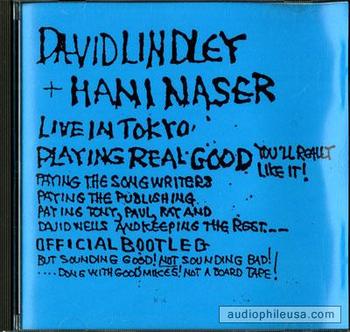 DAVID LINDLEY
+ HANI NASER
LIVE IN TOKYO,
PLAYING REAL GOOD YOU'LL REALLY LIKE IT!
PAYING THE SONGWRITERS
PAYING THE PUBLISHING
PAYING TONY, PAUL, RAY AND
DAVID WELLS AND KEEPING THE REST...
OFFICIAL BOOTLEG
BUT SOUNDING GOOD! NOT SOUNDING BAD!
....DONE WITH GOOD MIKES! NOT A BOARD TAPE!
audiophileusa.com